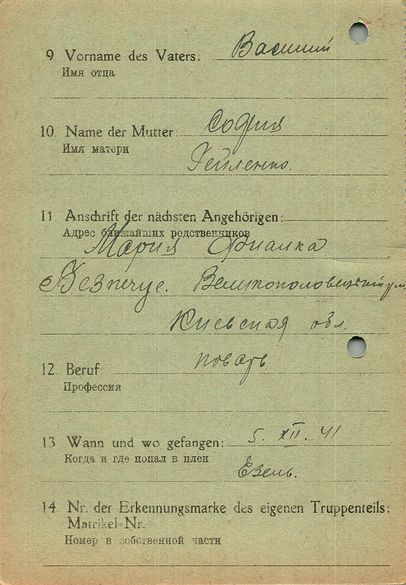 9 Vorname des Vaters: Василий
Имя отца
10. Name der Mutter: София
Имя матери
Гейленко.
11 Anschrift der nächsten Angehörigen:
Адрес ближайших родственников
Мария Фиалка
Безпечуе. Великополовецкий
Киевская обл.
12. Beruf: поварь
Профессия
13 Wann und wo gefangen: 5. XII. 41
Когда и где попал в плен
Езель.
14 Nr. der Erkennungsmarke des eigenen Truppenteils:
Matrikel-Nr.
Номер в собственной части